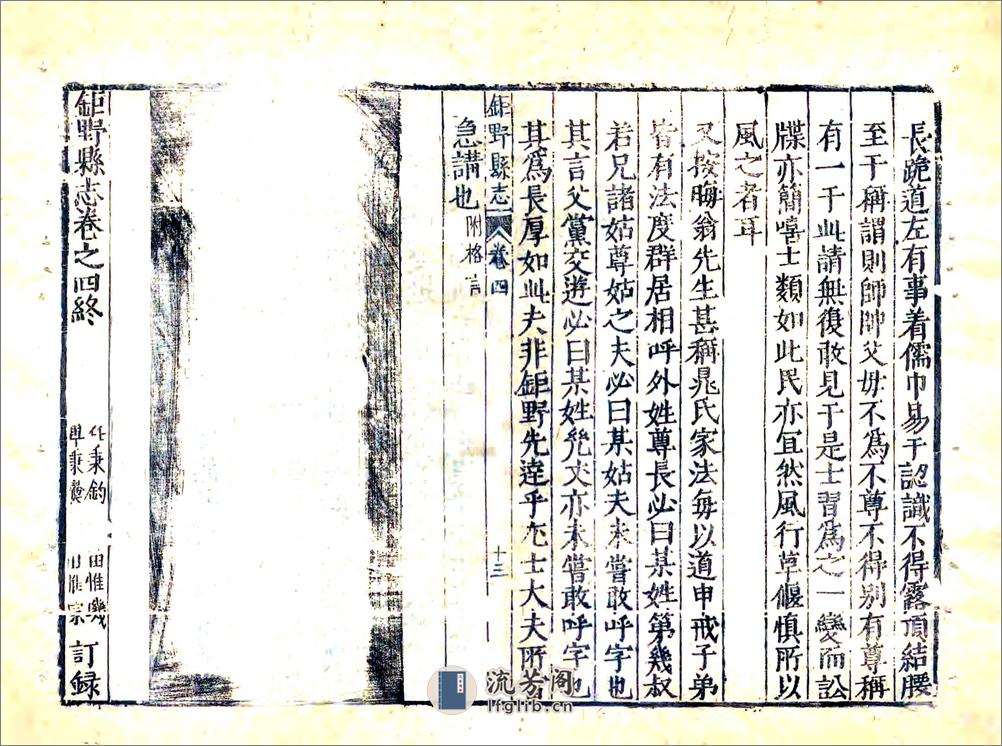 長跪道左有事着儒巾易于認識不得露頂結腰
至于稱謂則師師父母不為不尊不得別有尊稱
有一于此請無復敢見于是士習為之一變而訟
牒亦簡嘻士類如此民亦宜然風行草偃慎所以
風之者耳
又按晦翁先生甚稱晁氏家法每以道申戒子弟
皆有法度群居相呼外姓尊長必曰某姓第幾叔
若兄諸姑尊姑之夫必曰某姑夫未嘗敢呼字也
其言父黨交遊必曰某姓幾丈亦未嘗敢呼字也
其為長厚如此夫非鉅野先達乎凢士大夫所
急講也附格言
鉅野縣志 卷四 十三
鉅野縣志卷之四終
秉鈞 田惟璣
畢秉 田惟宗 訂録
流芳阁
lfglib.cn